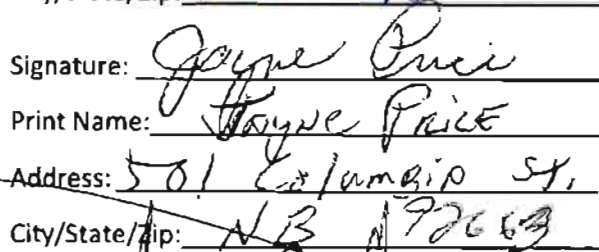 Signature: Jayne Price
Print Name: Jayne PRICE
Address: 501 Columbia St.
City/State/Zip: NB